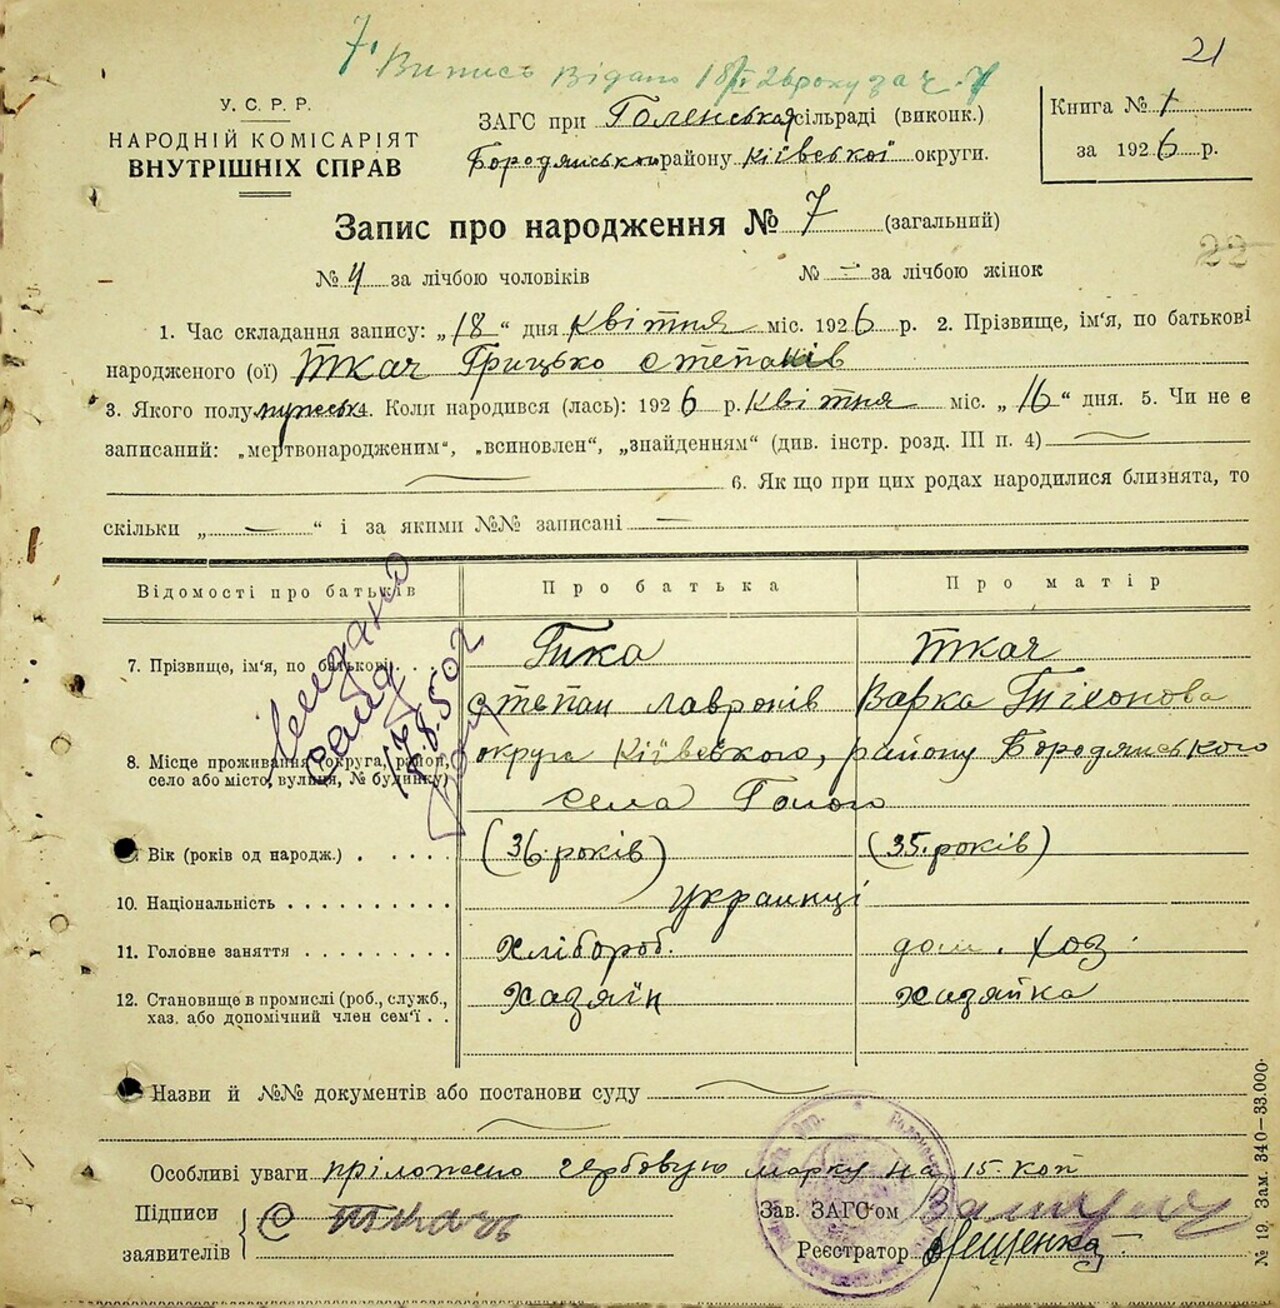 21
7. Випись видано 18/IV 26 року за ч. 7
У. С. Р. Р.
НАРОДНІЙ КОМІСАРІЯТ
ВНУТРІШНІХ СПРАВ
ЗАГС при Голенська сільраді (виконк.)
Бородянськ району Київської округи.
Книга № 1
за 1926 р.
Запис про народження № 7 (загальний)
22
№ 4 за лічбою чоловіків № — за лічбою жінок
1. Час складання запису: „18“ дня Квітня міс. 1926 р. 2. Прізвище, ім'я, по батькові
народженого (ої) Ткач Грицько Степанів
3. Якого полу мужськ 4. Коли народився (лась): 1926 р. Квітня міс. „16“ дня. 5. Чи не є
записаний: „мертвонародженим“, „всиновлен“, „знайденням“ (див. інстр. розд. III п. 4) —
— 6. Як що при цих родах народилися близнята, то
скільки „—“ і за якими №№ записані —
Відомості про батьків Про батька Про матір
7. Прізвище, ім'я, по батькові . . . Ткач
Степан Лавронів Варка Тихонова
8. Місце проживання (округа, район,
село або місто, вулиця, № будинку)
округа Київського, району Бородянського
села Голого
17.8.50
Вік (років од народж.) . . . . . (36 років) (35 років)
10. Національність . . . . . . . . . . украинці
11. Головне заняття . . . . . . . . . Хлібороб. дом. хоз.
12. Становище в промислі (роб., служб.,
хаз. або допомічний член сем'ї . .
Хазяїн хазяйка
Назви й №№ документів або постанови суду —
—
Особливі уваги пріложено гербовую марку на 15. коп
Підписи
заявителів
С Ткачь
Зав. ЗАГС'ом
Реєстратор
№ 19. Зам. 340—33.000.